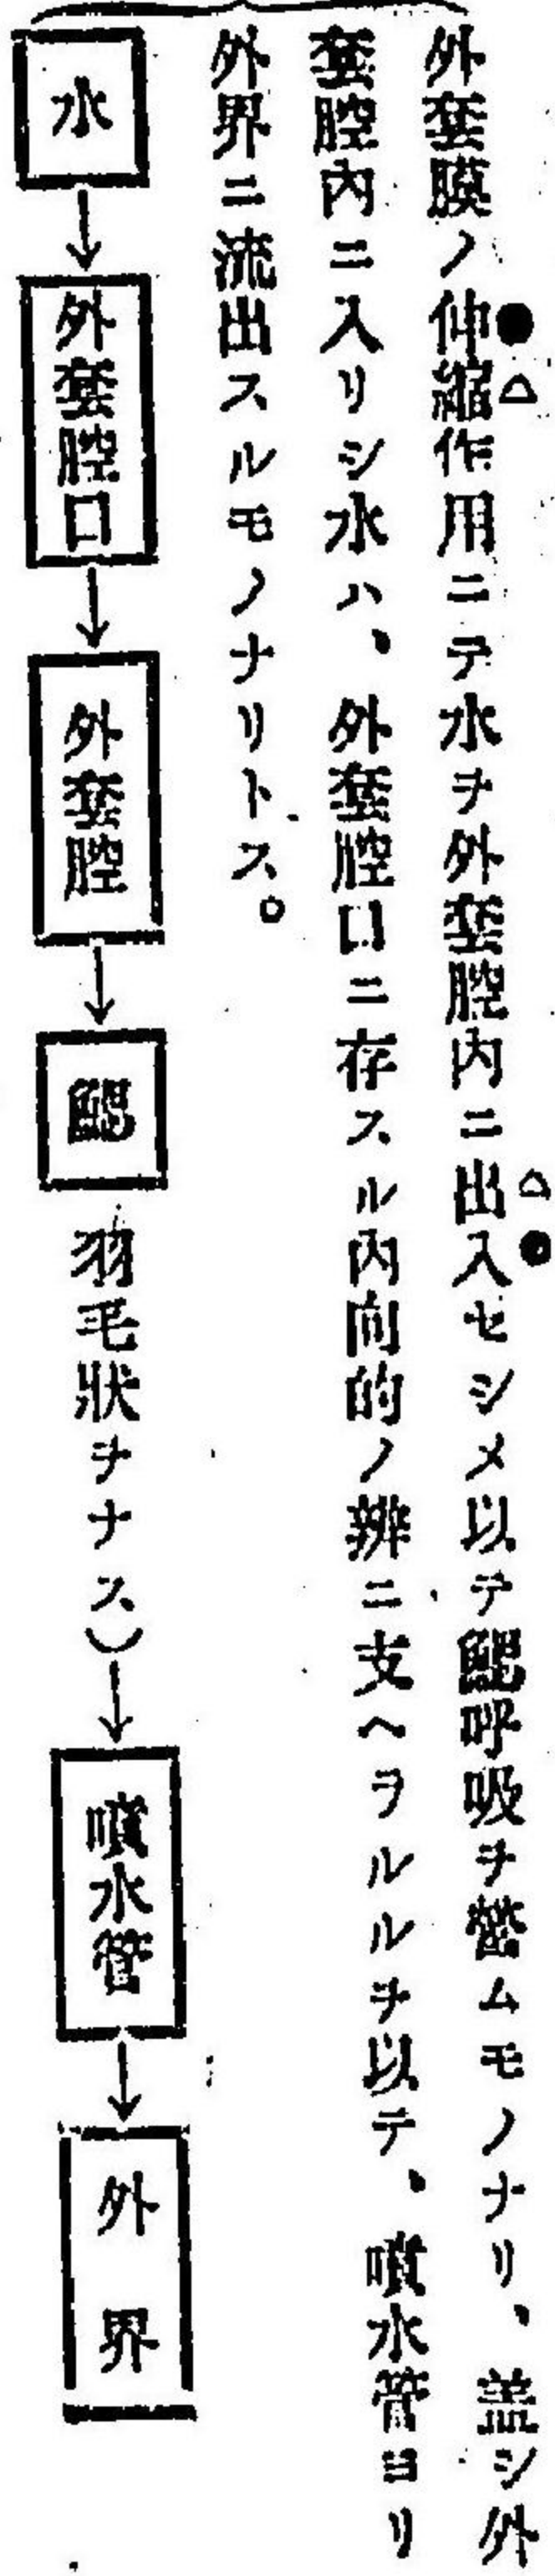 外套膜ノ伸縮作用ニテ水ヲ外套腔内ニ出入セシメ以テ鰓呼吸ヲ營ムモノナリ、盖シ外
套腔内ニ入リシ水ハ、外套腔口ニ存スル内向的ノ辨ニ支ヘヲルルヲ以テ、噴水管ヨリ
外界ニ流出スルモノナリトス。
水→外套腔口→外套腔→鰓 羽毛狀ヲナス)→噴水管→外界